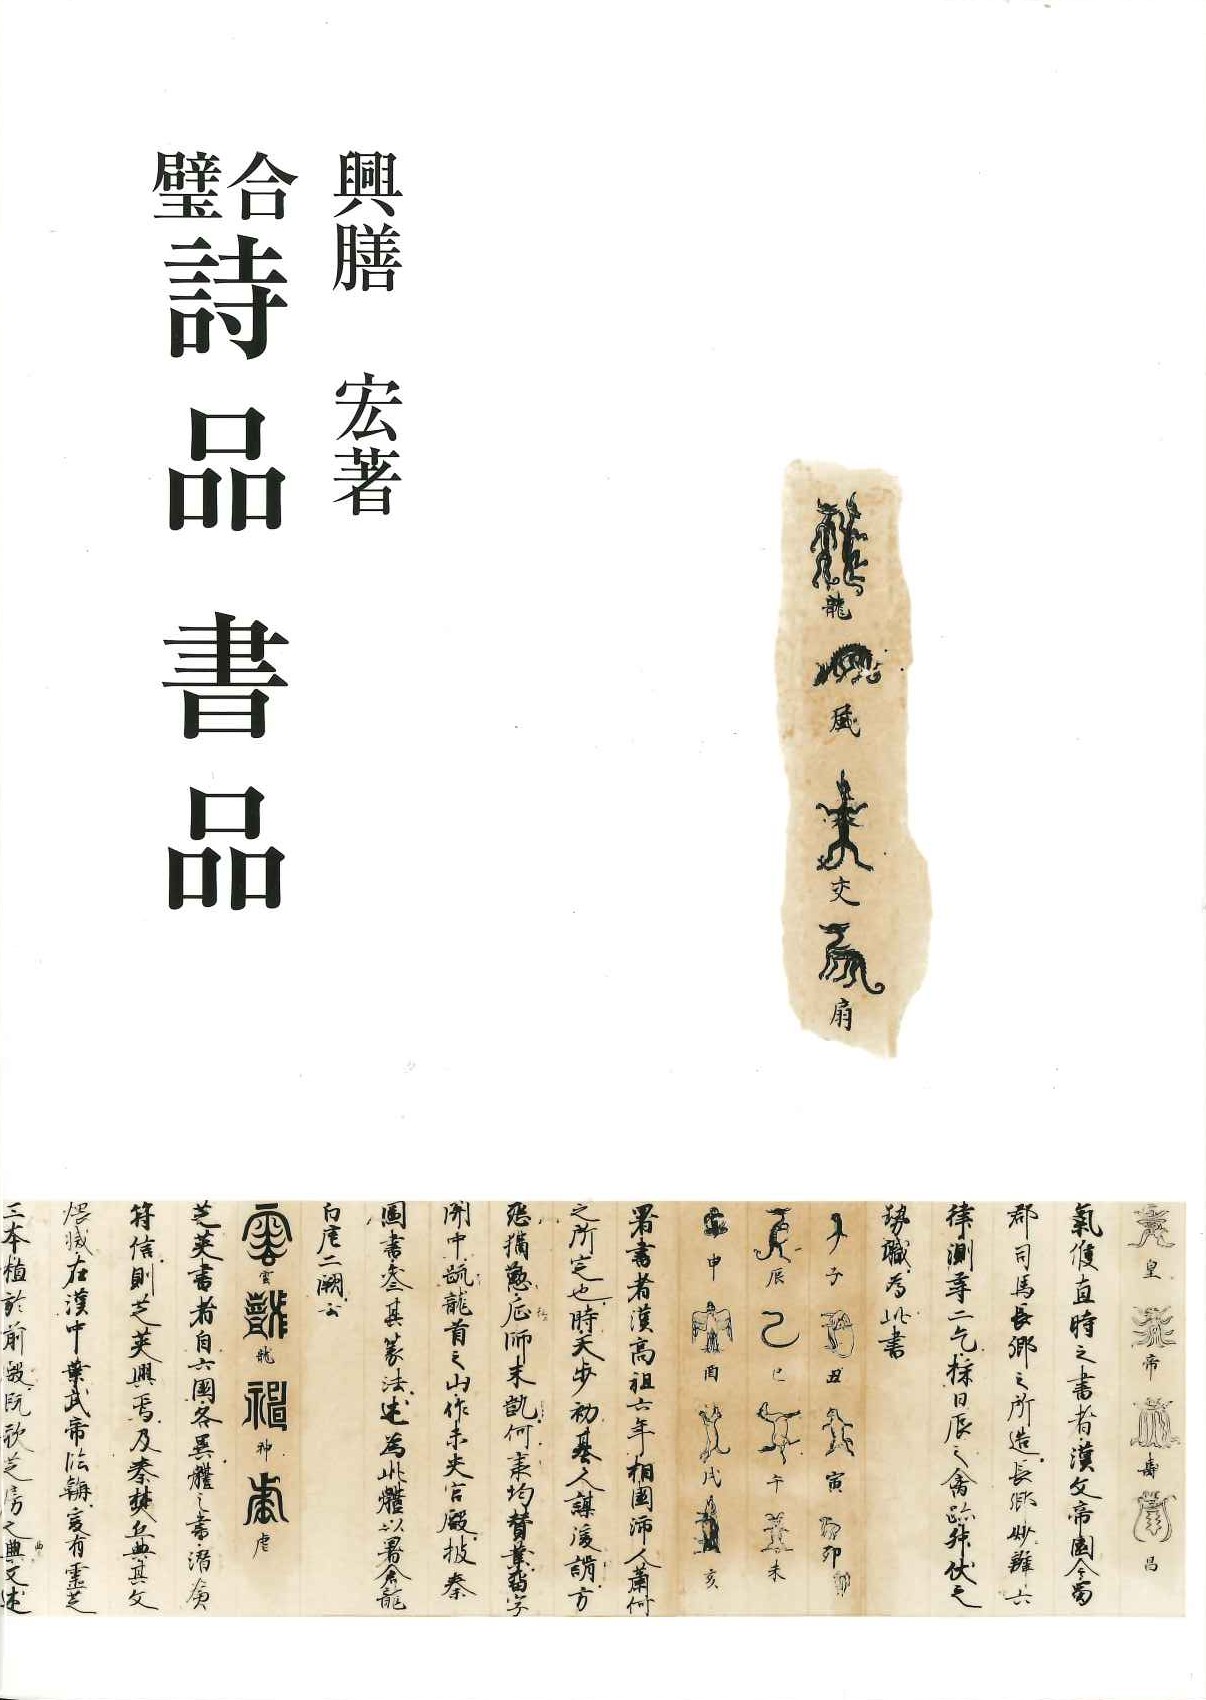 興膳 宏著
合璧 詩品 書品
龍
風
交
扇
皇 帝 壽 昌
氣候直時之書者漢文帝國令蜀
郡司馬長卿之所造長卿妙雜六
律測尋二气採日辰之禽跡舛伏之
勢職為此書
子 丑 寅 卯
辰 巳 午 未
申 酉 戌 亥
署書者漢高祖六年相國沛人蕭何
之所定也時天步初基人謀後謂方
開中甗龍首之山作未央宮殿披秦
圖書叁其篆法述為此體以署倉龍
白虎二闕云
雲 龍 神 虎
芝英書者自六國各異體之書潛貟
符信則芝英興焉及秦焚丘典其文
煨滅在漢中葉武帝臨朝爰有靈芝
三本植於前殿既歌芝房之典又述